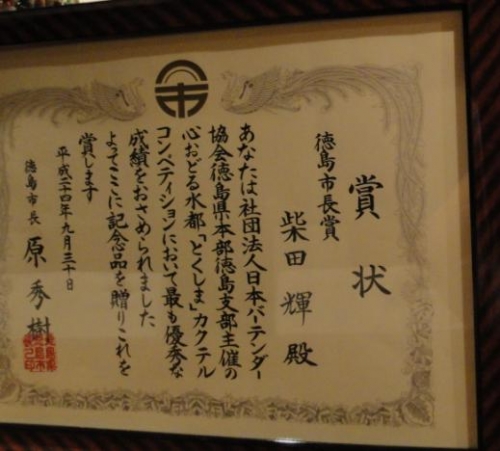 賞状
徳島市長賞
柴田輝殿
あなたは社団法人日本バーテンダー
協会徳島県本部徳島支部主催の
心おどる水都「とくしま」カクテル
コンペティションにおいて最も優秀な
成績をおさめられました
よってここに記念品を贈りこれを
賞します
平成二十四年九月三十日
徳島市長 原秀樹